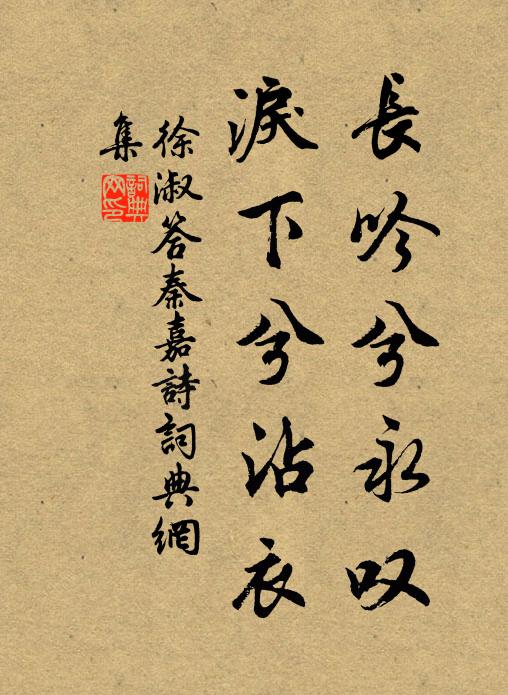 長吟兮永叹
淚下兮沾衣
徐淑答秦嘉詩詞典網
集
詞典
网印